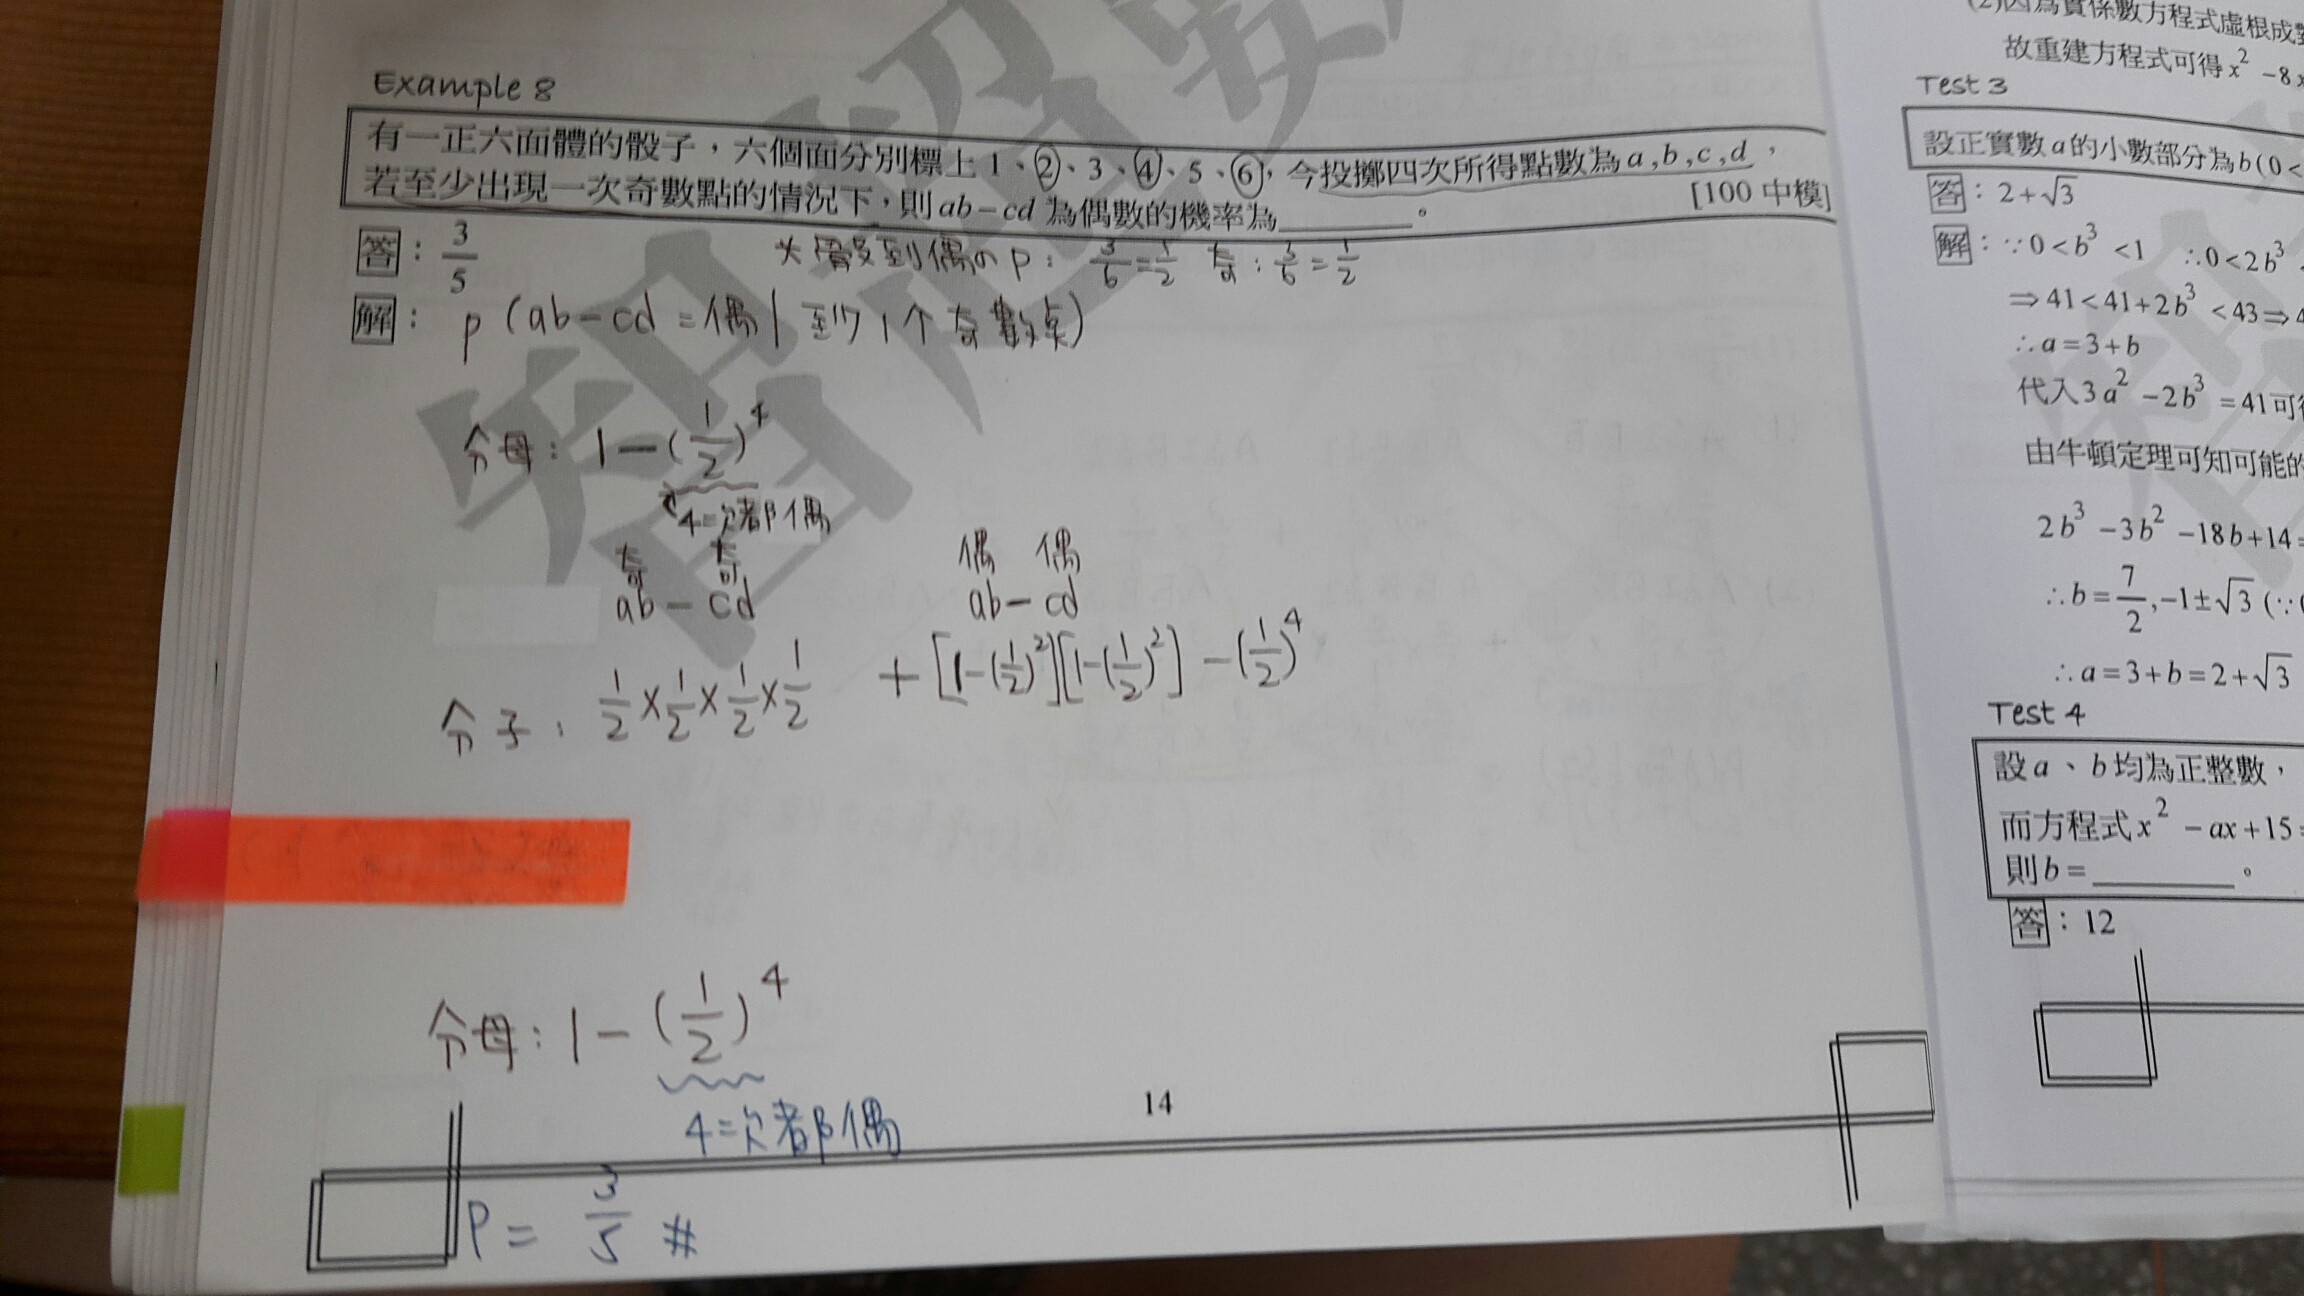 Example 8
有一正六面體的骰子，六個面分別標上 1、2、3、4、5、6，今投擲四次所得點數為 a,b,c,d，
若至少出現一次奇數點的情況下，則 ab－cd 為偶數的機率為________。
[100 中模]
答：3/5
骰到偶の P： 3/6 = 1/2 奇：3/6 = 1/2
解：P (ab－cd = 偶 | 至少 1 个奇數点)
分母：1－(1/2)^4
4次都偶
奇 奇 偶 偶
ab － cd ab － cd
分子：1/2 × 1/2 × 1/2 × 1/2 + [1－(1/2)^2][1－(1/2)^2] －(1/2)^4
分母：1－(1/2)^4
4次都偶
14
P = 3/5 #
(2)因為實係數方程式虛根成
故重建方程式可得 x^2 －8
Test 3
設正實數 a 的小數部分為 b(0<
答：2+√3
解：∵0<b^3<1 ∴0<2b^3
⇒41<41+2b^3<43⇒
∴a=3+b
代入3a^2－2b^3=41可
由牛頓定理可知可能的
2b^3－3b^2－18b+14=
∴b=7/2,－1±√3 (∵
∴a=3+b=2+√3
Test 4
設 a、b 均為正整數，
而方程式 x^2－ax+15=
則 b=________。
答：12